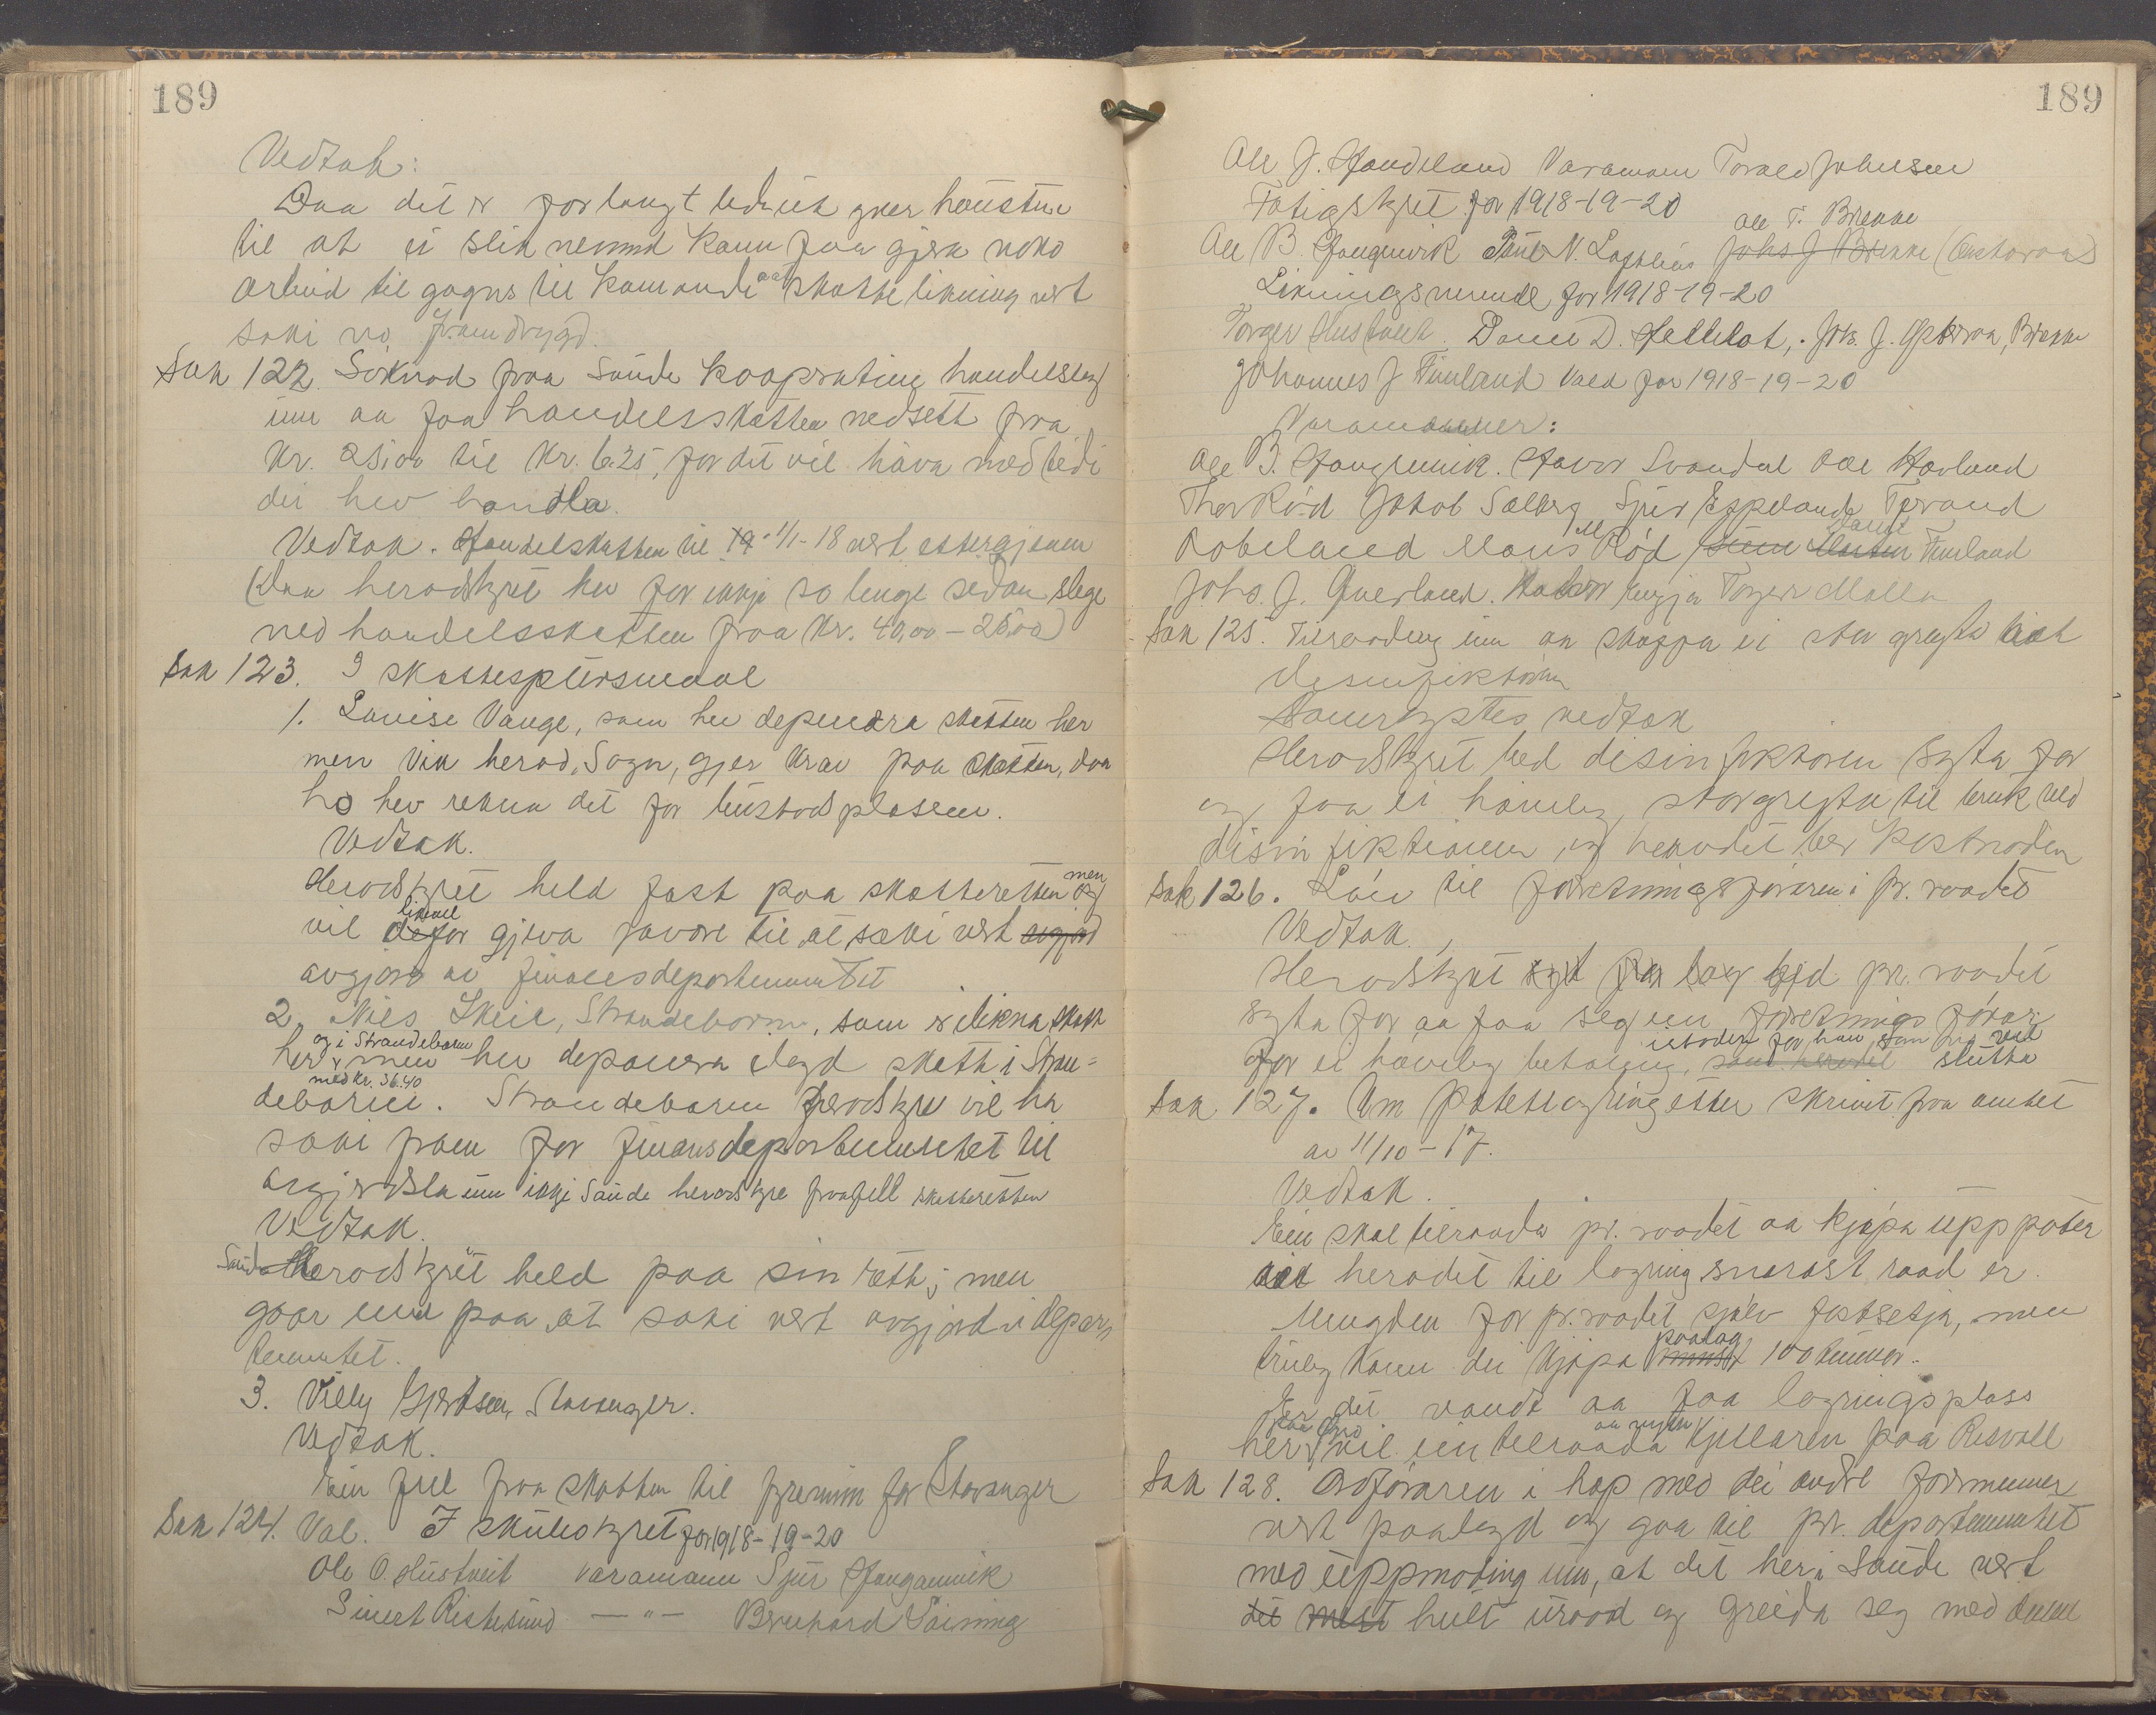 189
Vedtak:
Daa det er for langt lidi ut yver haustin
til at ei slik nemnd kann faa gjera noko
arbeid til gagns til komande aar skattelikning vert
saki no framdrygd.
Sak 122. Söknad fraa Saude kooprative handelslag
um aa faa handelsskatten nedsett fraa
kr. 25,00 til kr. 6.25, for dit vil hava med tidi
dei hev handla.
Vedtak. Handelskatten til 1/1-18 vert ettergjeven
(Daa heradstyret hev for ikkje so lenge sedan slege
ned handelsskatten fraa kr. 40,00 – 25,00)
Sak 123. I skattespursmaal
1. Lovise Vange, som hev deponera skatten her
men Vik herad, Sogn, gjer krav paa skatten, daa
ho hev rekna det for bustadsplassen.
Vedtak.
Heradstyret held fast paa skatteretten men
vil likevel gjeva samre til at saki vert avgjord
avgjord av finansdepartementet
2. Nils Skeie, Strandebarm, som er likna skatt
her og i Strandebarm men hev deponera ilagd skatt i Stran-
debarm med kr. 36.40. Strandebarm heradstyre vil ha
saki fram for finansdepartementet til
avgjerdsla um ikkje Saude heradstyre fraafell skatteretten
Vedtak.
Saude Heradstyret held paa sin rett; men
gaar inn paa at saki vert avgjord i depar-
tementet.
3. Villy Gjertsen, Stavanger.
Vedtak.
Ein fell fraa skatten til fyremun for Stavanger
Sak 124. Val. I skulestyret for 1918-19-20
Ole O. Hustveit varamann Sjur Honganvik
Sivert Risbesund — " — Bernhard Söining
189
Ole J. Handeland Varamann Torald Johnsen
Fatigstyret for 1918-19-20
Ole T. Brekke
Ole B. Honganvik Paul N. Johs J Brekke
Likningsnemnd for 1918-19-20
Torger Hustveit. Daniel D. Hellelat, Johs. J. Brekke
Johannes J Finnland Vald for 1918-19-20
Varamenner:
Ole B. Honganvik. Havor Svandal Ole Havland
Thor Röd Jakob Solberg Sjur Eppeland Torand
Aabeland Mons M Röd Finnland
Johs. J. Kverland. Torger Molla
Sak 125. Tilraading um aa skaffa ei stor gryta til
desinfiktören
Samrøystes vedtak
Heradstyret bed disinfiktören syta for
og faa ei høveleg storgryta til bruk ved
disinfiktionen og heradet ber kostnaden
Sak 126. Lön til forretningsföraren i pr. raadet
Vedtak.
Heradstyret bed pr. raadet
syta for aa faa seg ein forretnings förar
for ei høveleg betaling, istaden for han som no vil slutta
Sak 127. Um potetlagring etter skrivet fraa amtet
av 11/10-17.
Vedtak.
Ein skal tilraada pr. raadet aa kjøpa upp poter
i heradet til lagring snarast raad er.
Mengden faar pr. raadet sjølv fastsetja, men
truleg kann dei kjøpa paalag 100 tunnor.
Er det vandt aa faa lagringsplass
her paa Sand vil ein tilraada aa nytta kjellaren paa Risvoll
Sak 128. Ordföraren i hop med dei andre formenner
vert paalagd og gaa til pr. departementet
med uppmoding um, at det her i Saude vert
det mest heilt uraad og greida seg med